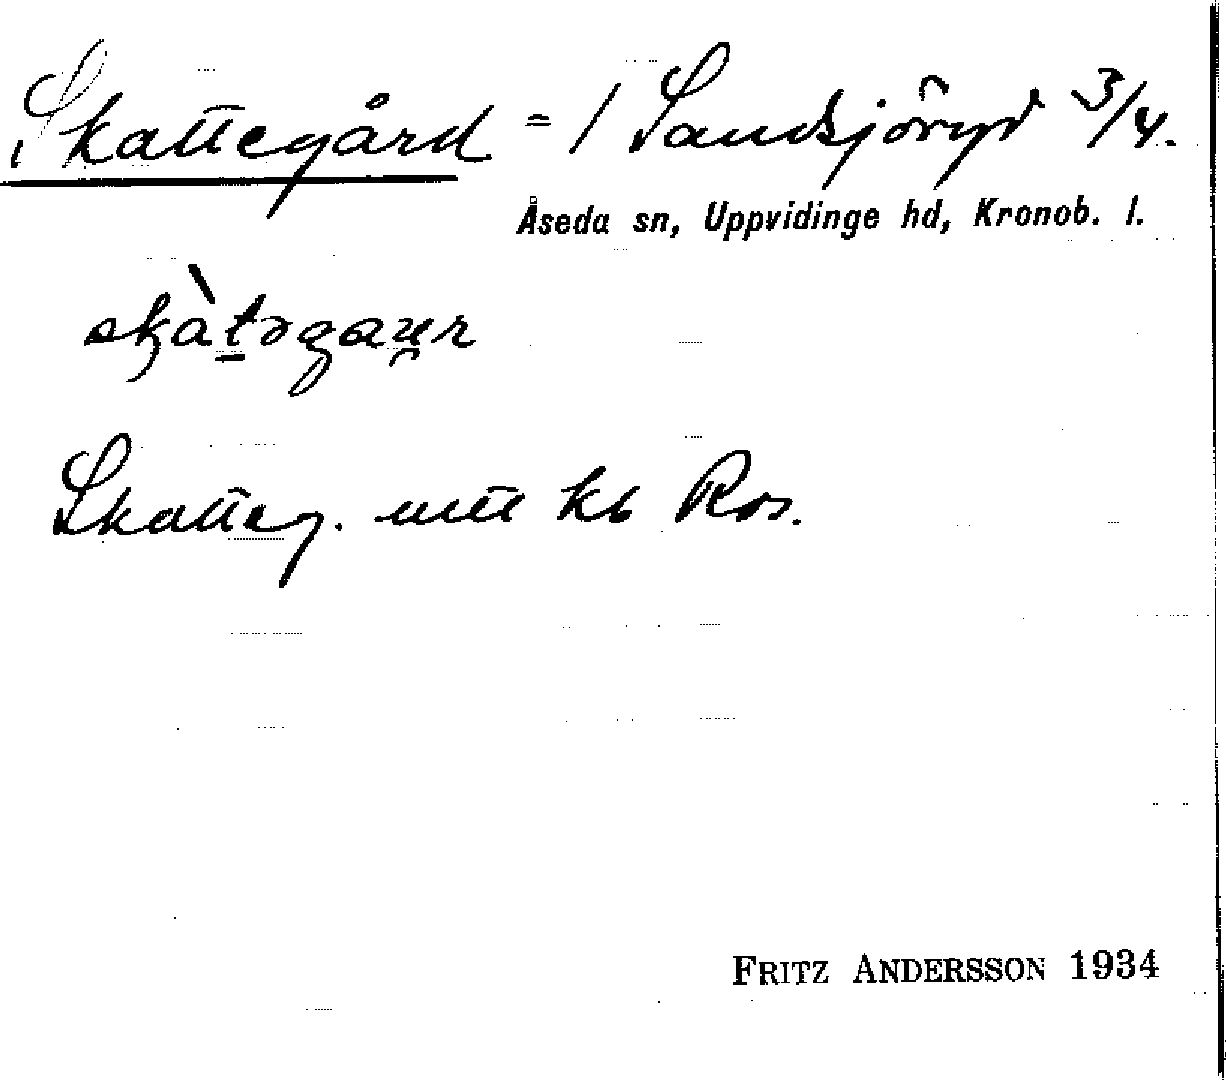 Skattegård = / Sandsjöryd 3/4.
Åseda sn, Uppvidinge hd, Kronob. l.
skàtəgau̯r
Skatteg. utt kb Ros.
FRITZ ANDERSSON 1934